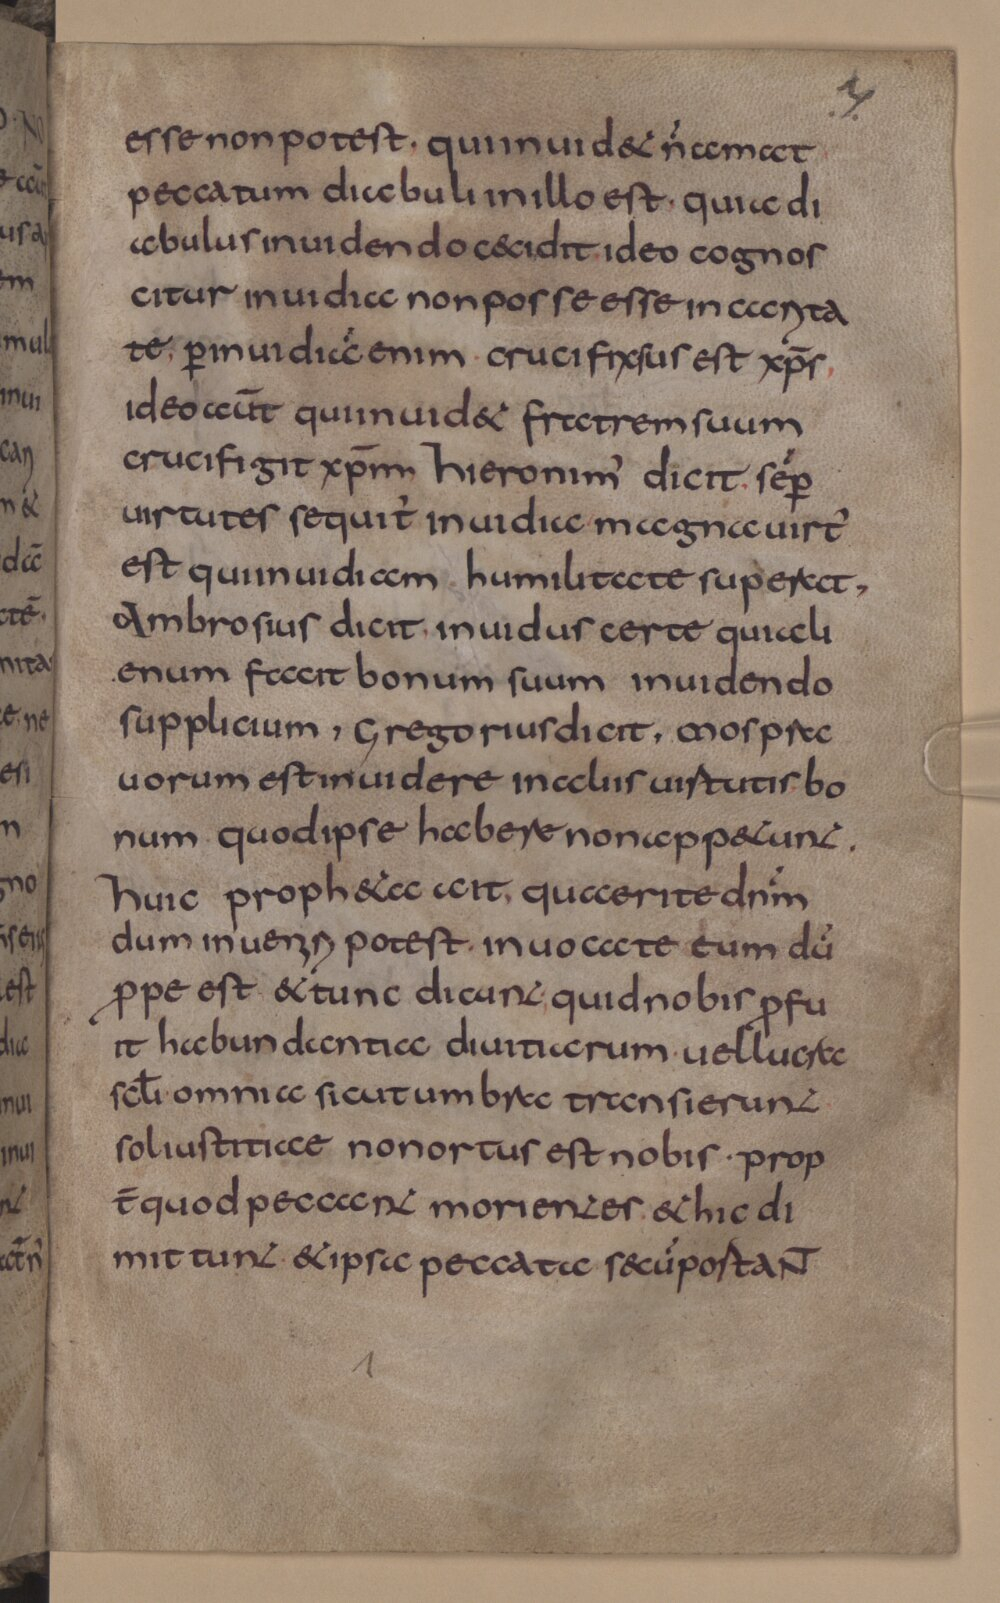 esse non potest. qui inuid& n̄ amat
peccatum diabuli in illo est. quia di
abulus inuidendo cecidit ideo cognos
citur inuidia non posse esse in carita
te, ꝑ inuidiā enim crucifixsus est xp̄s,
ideo aūt qui inuid& fratrem suum
crucifigit xp̄m hieronim᾽ dicit. sēꝑ
uirtutes sequit᾽ inuidia magna uirt᾽
est qui inuidiam humilitate superat,
Ambrosius dicit. inuidus certe qui ali
enum facit bonum suum inuidendo
supplicium, Gregorius dicit, mos pra
uorum est inuidere in aliis uirtutis bo
num quod ipse habere non app&unt.
huic proph&a ait, quaerite dn̄m
dum inueniri potest. inuocate eum dū
ꝓpe est &tunc dicunt quid nobis ꝓfu
it habundantia diuitiarum uelluc ra
scl̄i omnia sicut umbra transierunt
sol iustitiae non ortus est nobis. prop
t̄ quod peccant morientes &hic di
mittunt &ipsa peccata secū postant̄
1